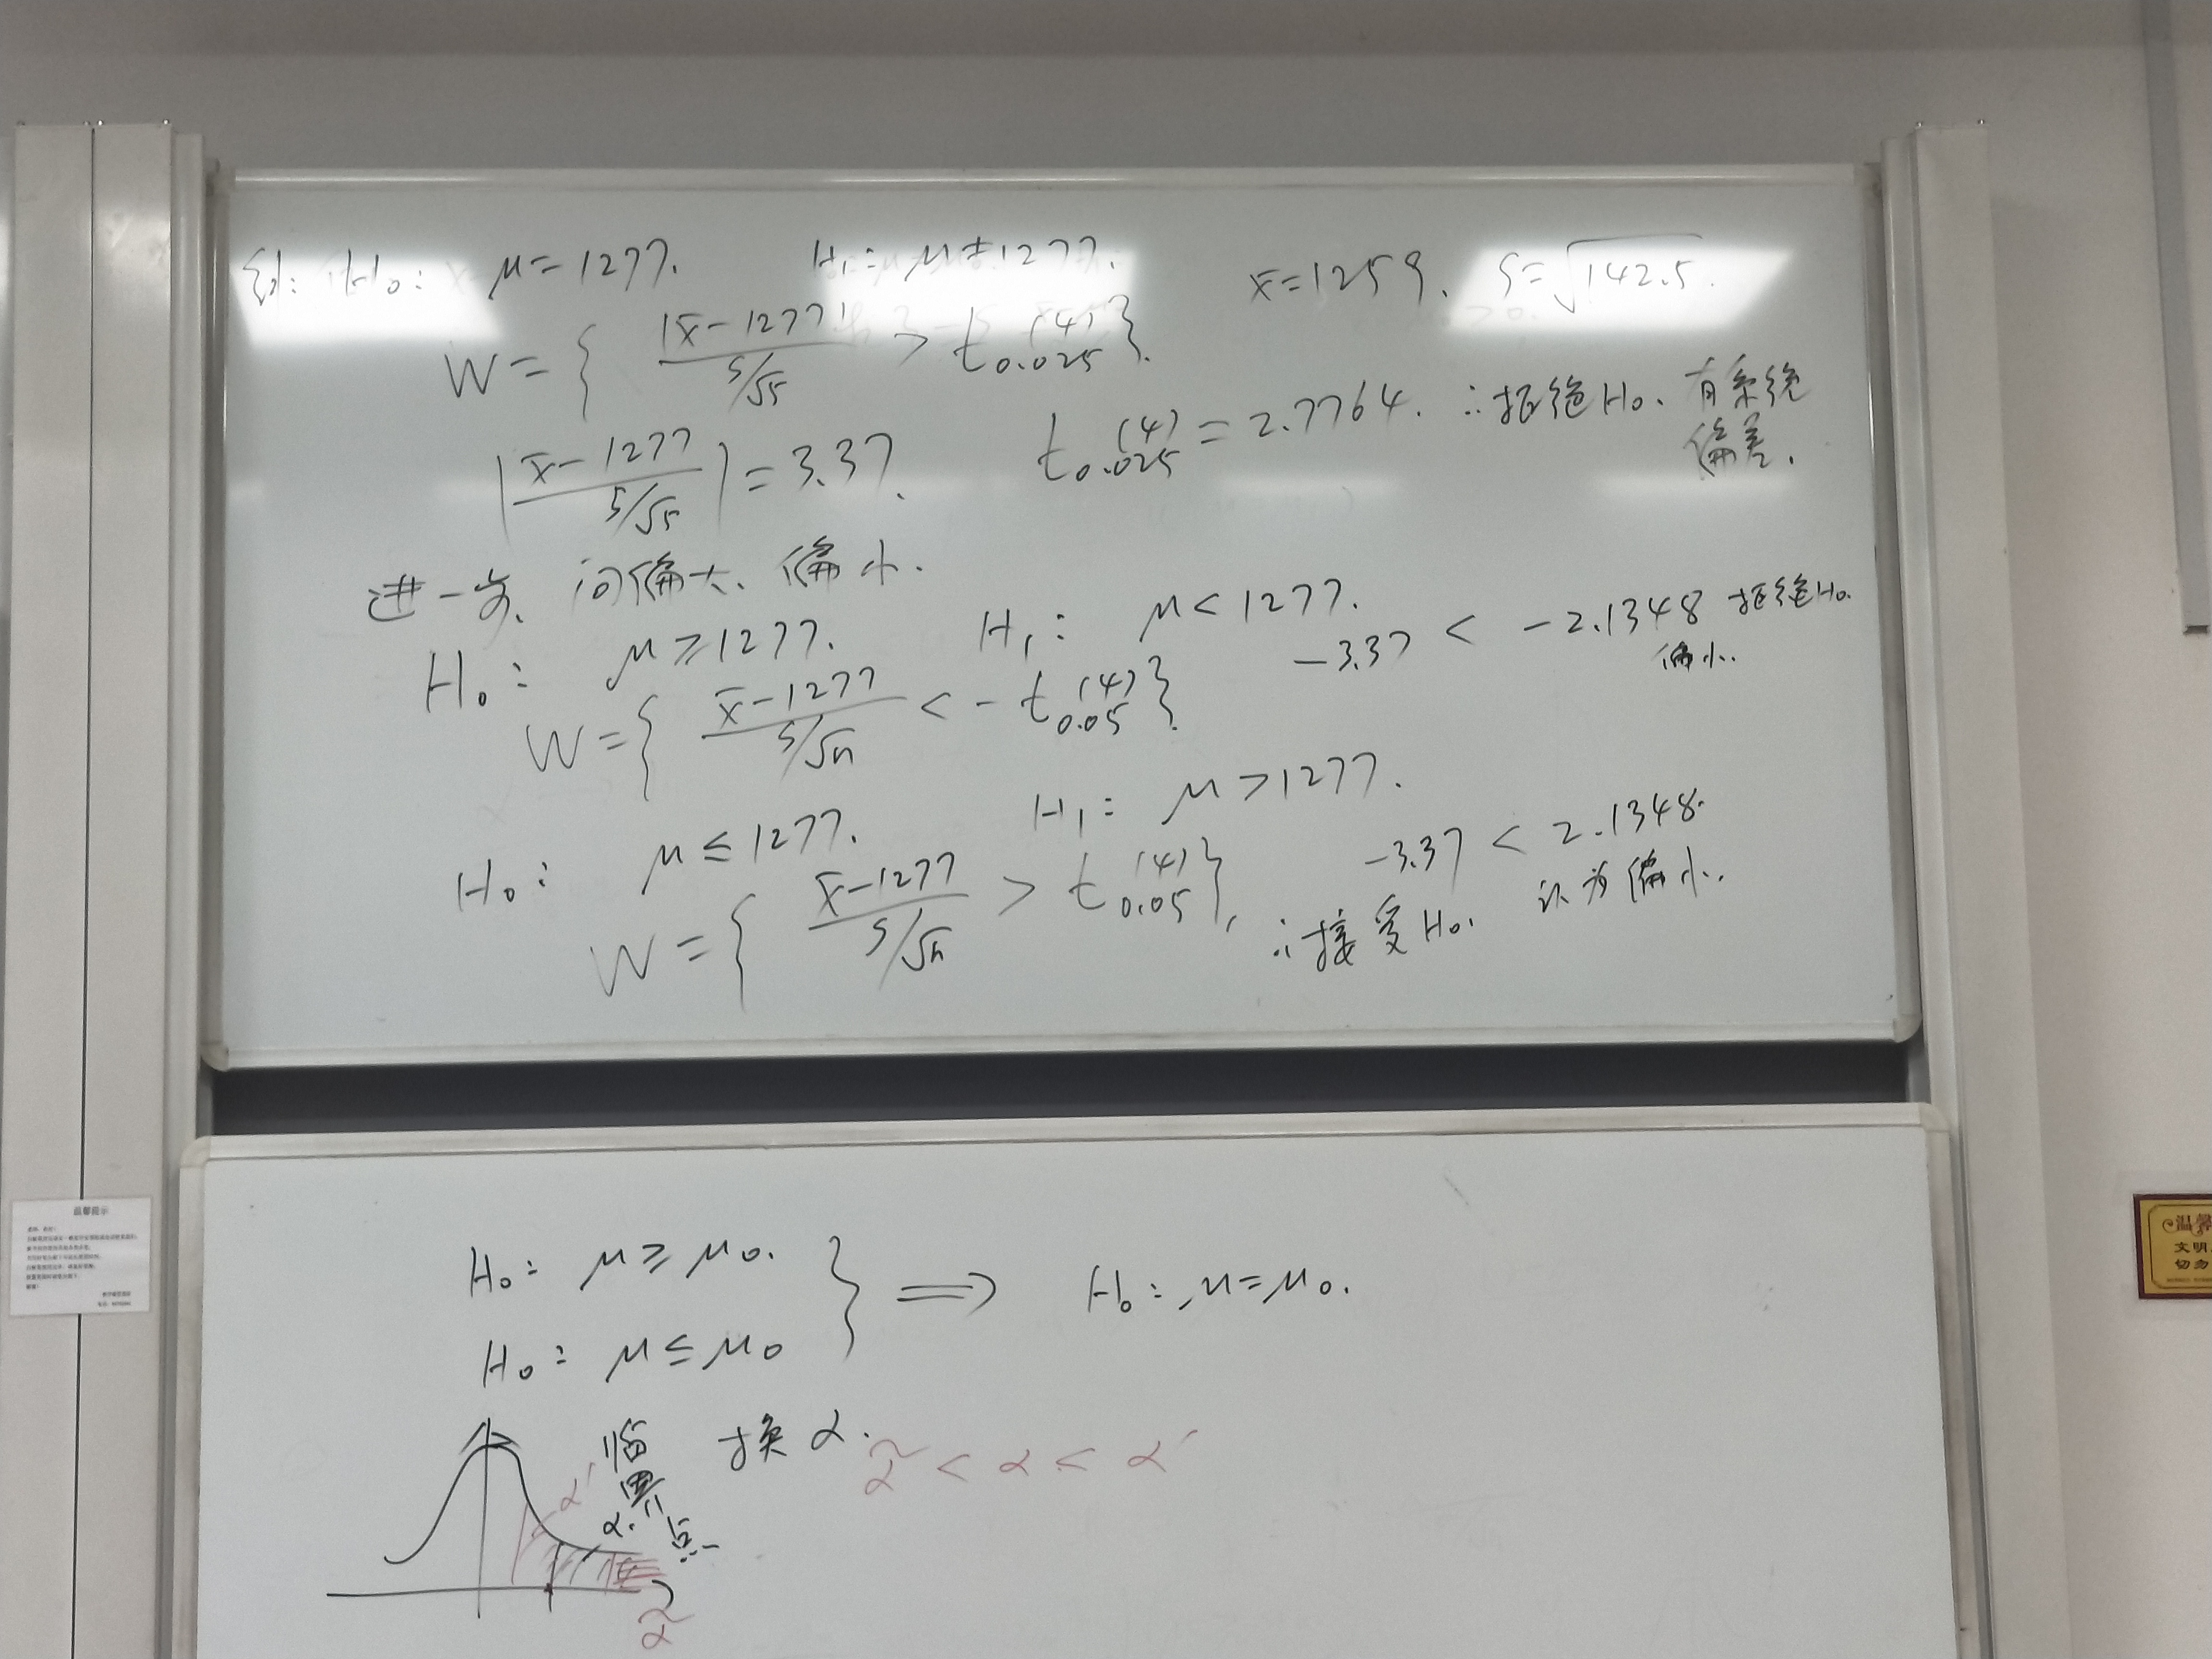 例: H₀: μ=1277. H₁: μ≠1277. x̄=1259. S=√142.5.
W={ |x̄-1277| / S/√5 > t₀.₀₂₅(4) }.
| x̄-1277 / S/√5 | =3.37. t₀.₀₂₅(4) = 2.7764. ∴拒绝H₀. 有系统偏差.
进一步, 问偏大、偏小.
H₀: μ≥1277. H₁: μ<1277. -3.37 < -2.1348 拒绝H₀. 偏小.
W={ x̄-1277 / S/√n < -t₀.₀₅(4) }.
H₀: μ≤1277. H₁: μ>1277. -3.37 < 2.1348.
W={ x̄-1277 / S/√n > t₀.₀₅(4) }. ∴接受H₀. 认为偏小.
H₀: μ≥μ₀.
H₀: μ≤μ₀ } ⟹ H₀: μ=μ₀.
临界点 换α. α̃ < α < α'
α'
α.
α̃
温馨提示
温馨
文明
切勿